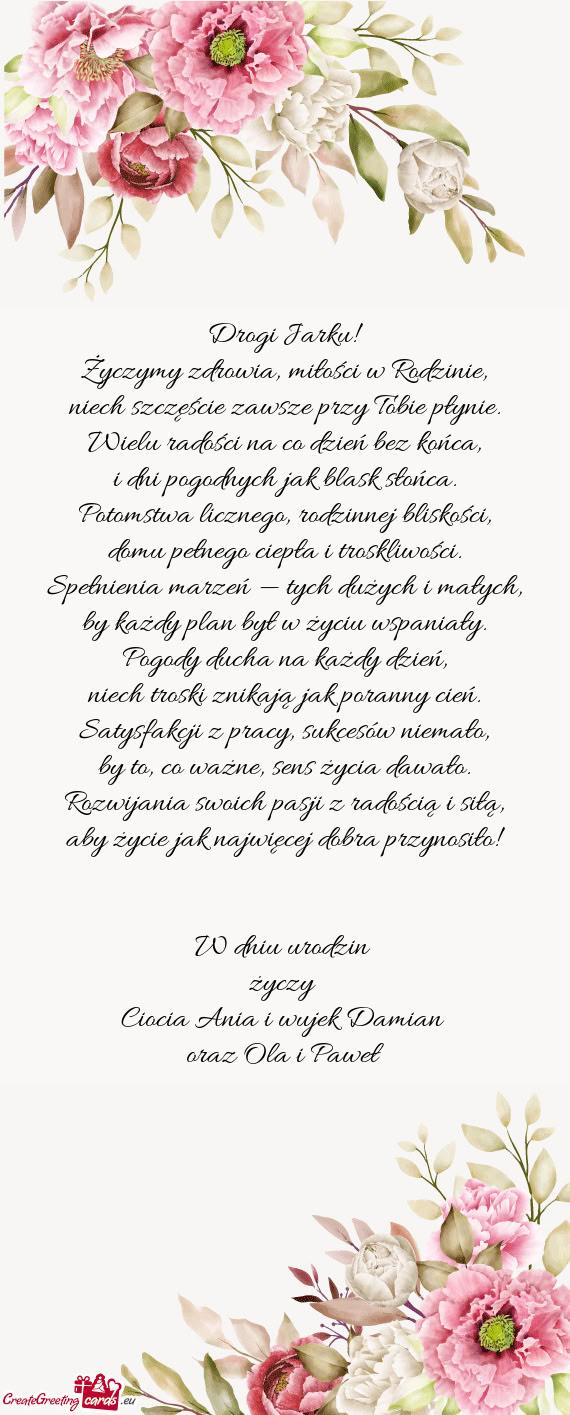 Drogi Jarku!
Życzymy zdrowia, miłości w Rodzinie,
niech szczęście zawsze przy Tobie płynie.
Wielu radości na co dzień bez końca,
i dni pogodnych jak blask słońca.
Potomstwa licznego, rodzinnej bliskości,
domu pełnego ciepła i troskliwości.
Spełnienia marzeń – tych dużych i małych,
by każdy plan był w życiu wspaniały.
Pogody ducha na każdy dzień,
niech troski znikają jak poranny cień.
Satysfakcji z pracy, sukcesów niemało,
by to, co ważne, sens życia dawało.
Rozwijania swoich pasji z radością i siłą,
aby życie jak najwięcej dobra przynosiło!
W dniu urodzin
życzy
Ciocia Ania i wujek Damian
oraz Ola i Paweł
CreateGreeting cards .eu